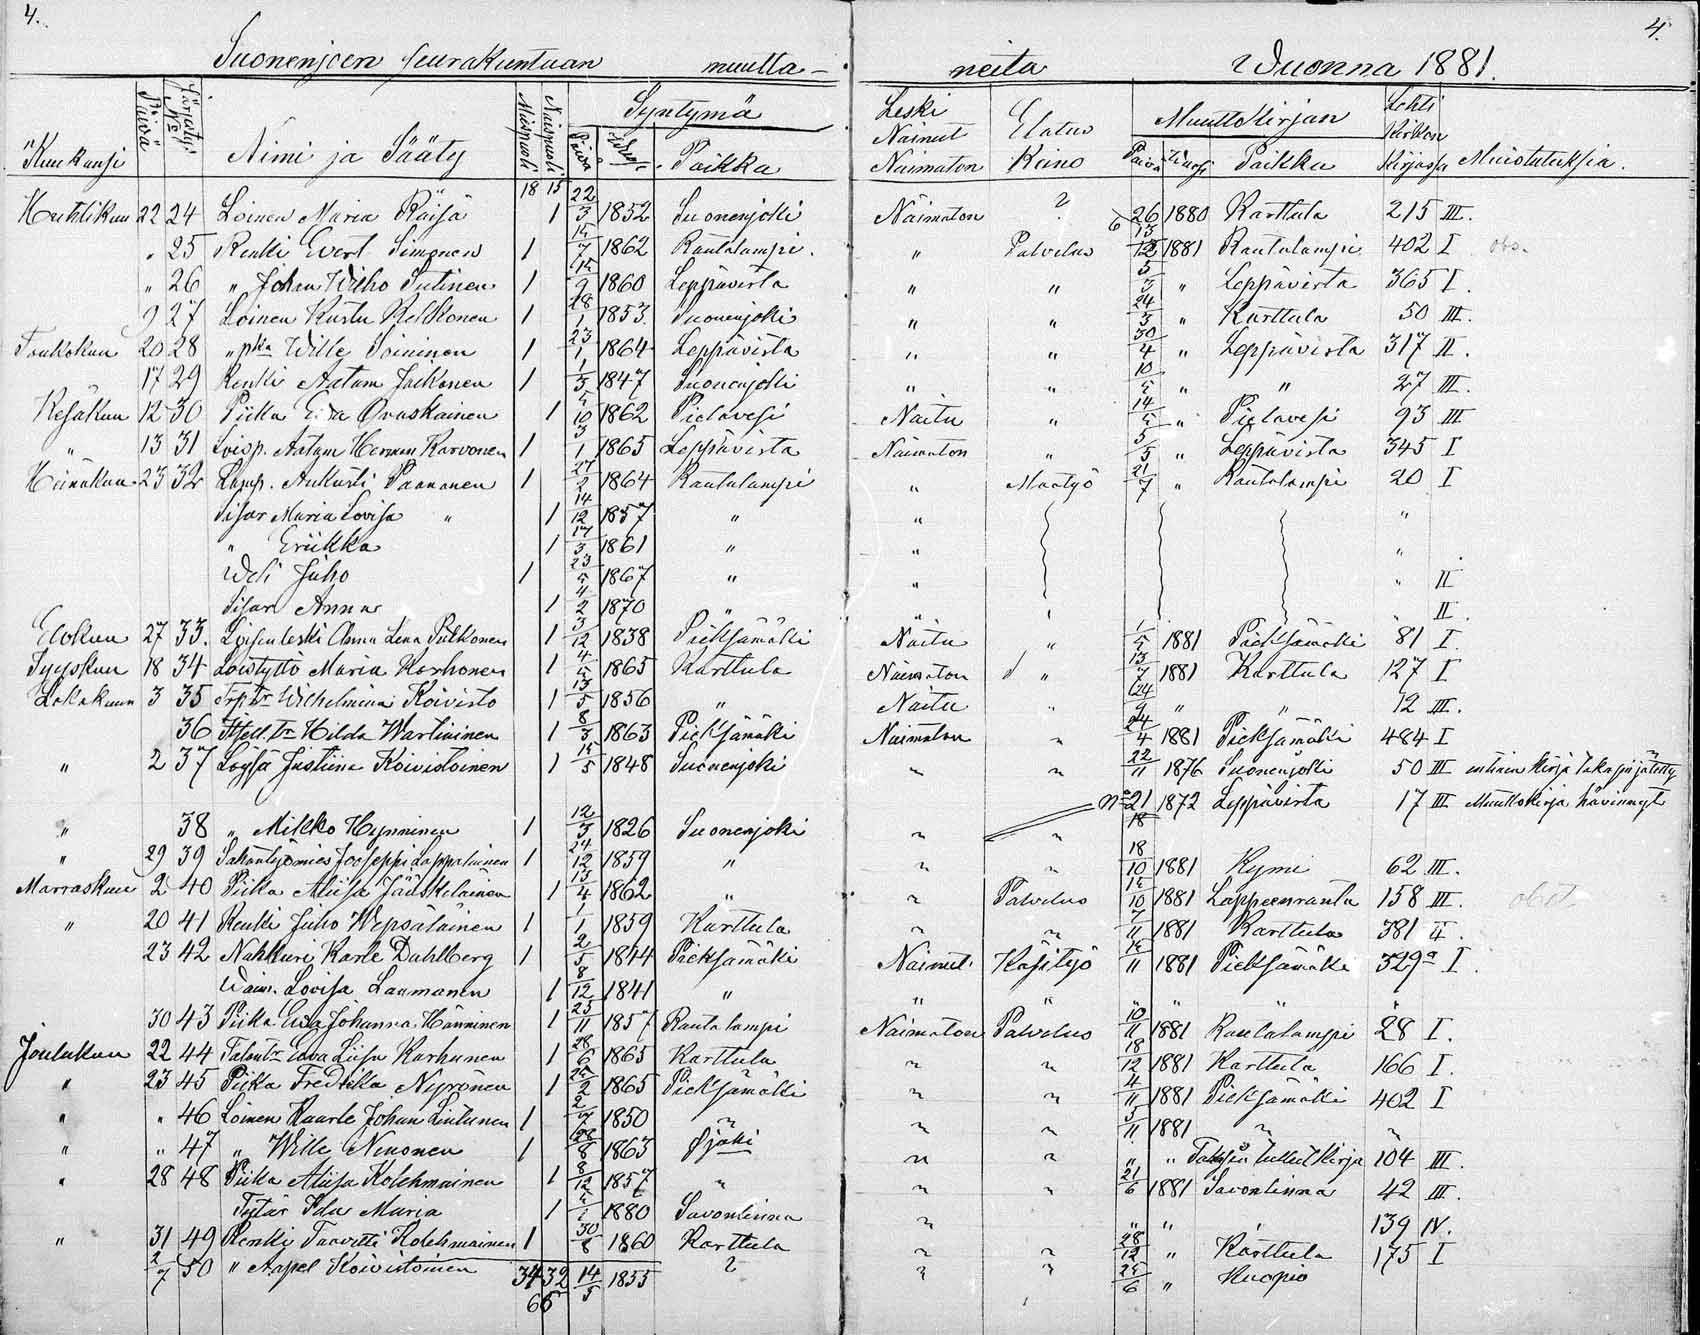 4. 4.
Suonenjoen seurakuntaan muutta- neita Wuonna 1881.
Kuukausi Päivä Järjestys No Nimi ja Sääty Miespuoli Naispuoli Syntymä Päivä Paikka Leski Nainut Naimaton Elatus Keino Muuttokirjan Päivä Paikka Lehti Kirkon Kirjassa Muistutuksia.
18 15
Huhtikuu 22 24 Loinen Maria Räisä 1 22/3 1852 Suonenjoki Naimaton ? 26 1880 Karttula 215 III.
" 25 Renki Evert Simonen 1 15/7 1862 Rautalampi. " Palvelus 1881 Rautalampi 402 I obs.
" 26 " Johan Wilho Sutinen 1 15/9 1860 Leppävirta " " 5/3 " Leppävirta 365 I.
9 27 Loinen Kustu Kekkonen 1 28/1 1853. Suonenjoki " " 24/3 " Karttula 50 III.
Toukokuu 20 28 " pka Wille Soininen 1 23/1 1864 Leppävirta " " 30/4 " Leppävirta 317 II.
17 29 Renki Aatam Jäskonen 1 1/3 1847 Suonenjoki " " 10/5 " " 27 III.
Kesäkuu 12 30 Piika Eeva Ovaskainen 1 5/10 1862 Pielavesi Naitu " 14/5 " Pielavesi 93 III
" 13 31 Loisp. Aatam Herman Karvonen 1 3/1 1865 Leppävirta Naimaton " 5/5 " Leppävirta 345 I
Heinäkuu 23 32 Lamp. Aukusti Paananen 1 27/2 1864 Rautalampi " Maatyö 21/7 " Rautalampi 20 I
Sisar Maria Lovisa " 1 14/12 1857 " " "
" Eriikka 1 17/3 1861 " " "
Weli Juho 1 23/5 1867 " " " II
Sisar Anna 1 4/2 1870 " " " II.
Elokuu 27 33. Loisen leski Anna Lena Pulkkonen 1 3/12 1838 Pieksämäki Naitu " 1/5 1881 Pieksämäki 81 I.
Syyskuu 18 34 Loistyttö Maria Korhonen 1 4/5 1865 Karttula Naimaton " 13/7 1881 Karttula 127 I
Lokakuu 3 35 Wilhelmina Koivisto 1 13/5 1856 " Naitu " 24/9 " " 12 III.
36 Hilda Wartiainen 1 8/3 1863 Pieksämäki Naimaton " 24/4 1881 Pieksämäki 484 I
" 2 37 Loysä Justiina Koivistoinen 1 15/5 1848 Suonenjoki " " 22/11 1876 Suonenjoki 50 III entinen kirja takasin jätetty
No 21/18 1872 Leppävirta 17 III Muuttokirja hävinnyt
" 38 " Mikko Hynninen 1 12/3 1826 Suonenjoki " "
" 29 39 Sahantyömies Jooseppi Lappalainen 1 24/12 1859 " " " 18/10 1881 Kymi 62 III.
Marraskuu 2 40 Piika Aliisa Jääskeläinen 1 13/4 1862 " " Palvelus 15/10 1881 Lappeenranta 158 III. obst
" 20 41 Renki Juho Wepsäläinen 1 1/1 1859 Karttula " " 7/11 1881 Karttula 381 II.
23 42 Nahkuri Karle Dahlberg 1 2/5 1844 Pieksämäki Nainut Käsityö 15/11 1881 Pieksämäki 329a I.
Waim. Lovisa Laumanen 1 8/12 1841 " " " " " " "
30 43 Piika Eeva Johanna Hänninen 1 25/11 1857 Rautalampi Naimaton Palvelus 10/11 1881 Rautalampi 28 I.
Joulukuu 22 44 Talontr Eeva Liisa Karhunen 1 28/6 1865 Karttula " " 18/12 1881 Karttula 166 I.
" 23 45 Piika Fredrika Nyrönen 1 25/2 1865 Pieksämäki " " 4/11 1881 Pieksämäki 402 I
" " 46 Loinen Kaarle Johan Liutunen 1 2/7 1850 " " " 5/11 1881 "
" " 47 " Wille Nenonen 1 28/8 1863 Sjoki " " " " Takasin tullut kirja 104 III.
" 28 48 Piika Aliisa Kolehmainen 1 8/12 1857 " " " 21/6 1881 Savonlinna 42 III.
Tytär Ida Maria 1 1880 Savonlinna " " " " 139 IV.
" 31 49 Renki Taavetti Kolehmainen 1 30/8 1860 Karttula " " 28/12 " Karttula 175 I
2/7 50 " Aapel Koivistoinen 34 32 14/5 1855 ? " " 25/6 " Kuopio
66